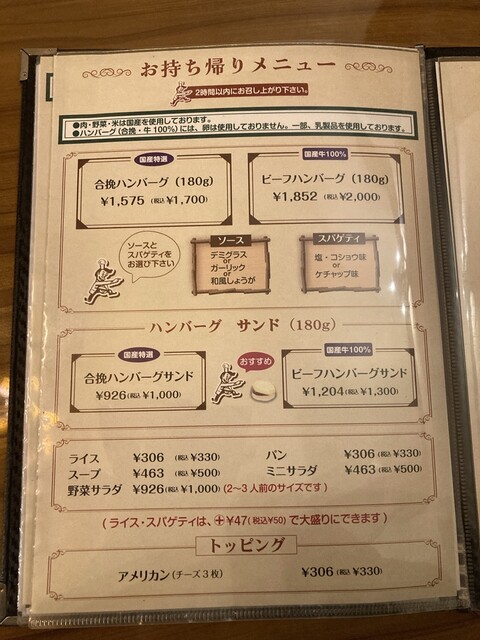 お持ち帰りメニュー
2時間以内にお召し上がり下さい。
●肉・野菜・米は国産を使用しております。
●ハンバーグ(合挽・牛100%)には、卵は使用しておりません。一部、乳製品を使用しております。
国産特選
合挽ハンバーグ(180g)
¥1,575 (税込¥1,700)
国産牛100%
ビーフハンバーグ(180g)
¥1,852 (税込¥2,000)
ソースと
スパゲティを
お選び下さい
ソース
デミグラス
or
ガーリック
or
和風しょうが
スパゲティ
塩・コショウ味
or
ケチャップ味
ハンバーグ サンド(180g)
国産特選
合挽ハンバーグサンド
¥926(税込¥1,000)
おすすめ
国産牛100%
ビーフハンバーグサンド
¥1,204(税込¥1,300)
ライス ¥306 (税込¥330) パン ¥306(税込¥330)
スープ ¥463 (税込¥500) ミニサラダ ¥463(税込¥500)
野菜サラダ ¥926(税込¥1,000) (2〜3人前のサイズです)
(ライス・スパゲティは、+¥47(税込¥50)で大盛りにできます)
トッピング
アメリカン(チーズ3枚) ¥306(税込¥330)